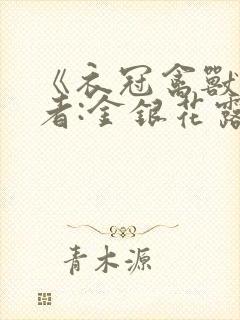 《衣冠禽獸
者:金銀花露
青木源